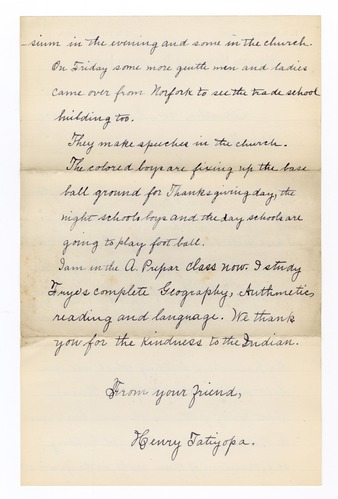 -sium in the evening and some in the church.
On Friday some more gentle men and ladies
came over from Norfork to see the trade school
building too.
They make speeches in the church.
The colored boys are fixing up the base
ball ground for Thanksgiving day, the
night schools boys and the day schools are
going to play foot ball.
I am in the A. Prepar class now. I study
Frye's complete Geography, Arithmetic,
reading and language. We thank
you for the kindness to the Indian.
From your friend,
Henry Tatiyopa.